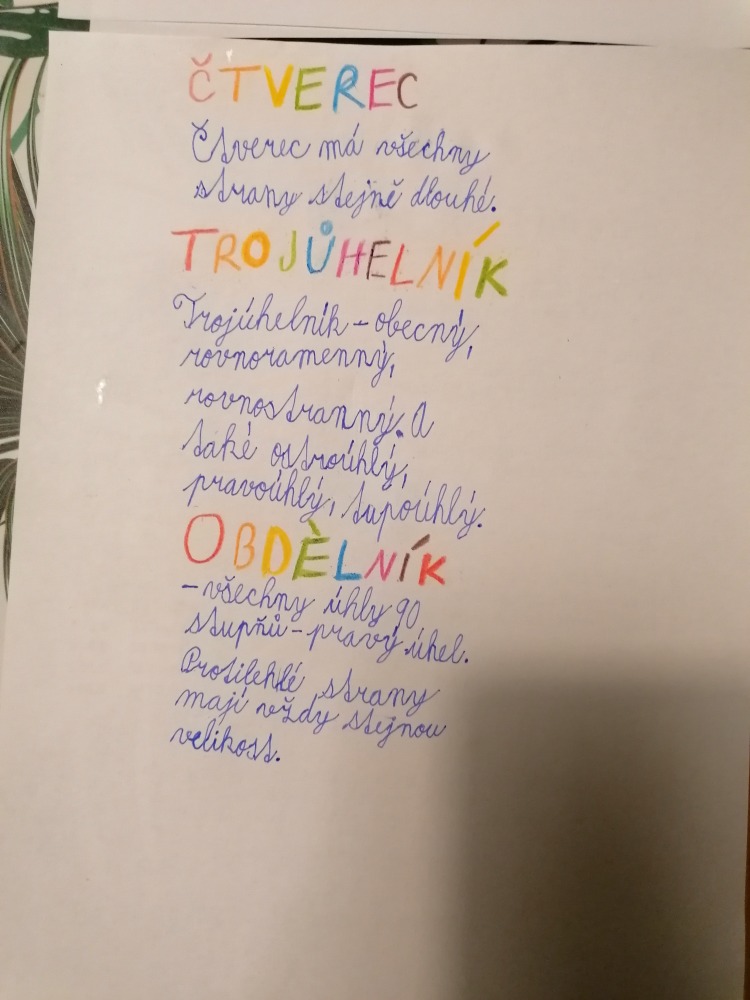 ČTVEREC
Čtverec má všechny
strany stejně dlouhé.
TROJŮHELNÍK
Trojúhelník - obecný,
rovnoramenný,
rovnostranný. A
také ostroúhlý,
pravoúhlý, tupoúhlý.
OBDÈLNÍK
- všechny úhly 90
stupňů - pravý úhel.
Protilehlé strany
mají vždy stejnou
velikost.